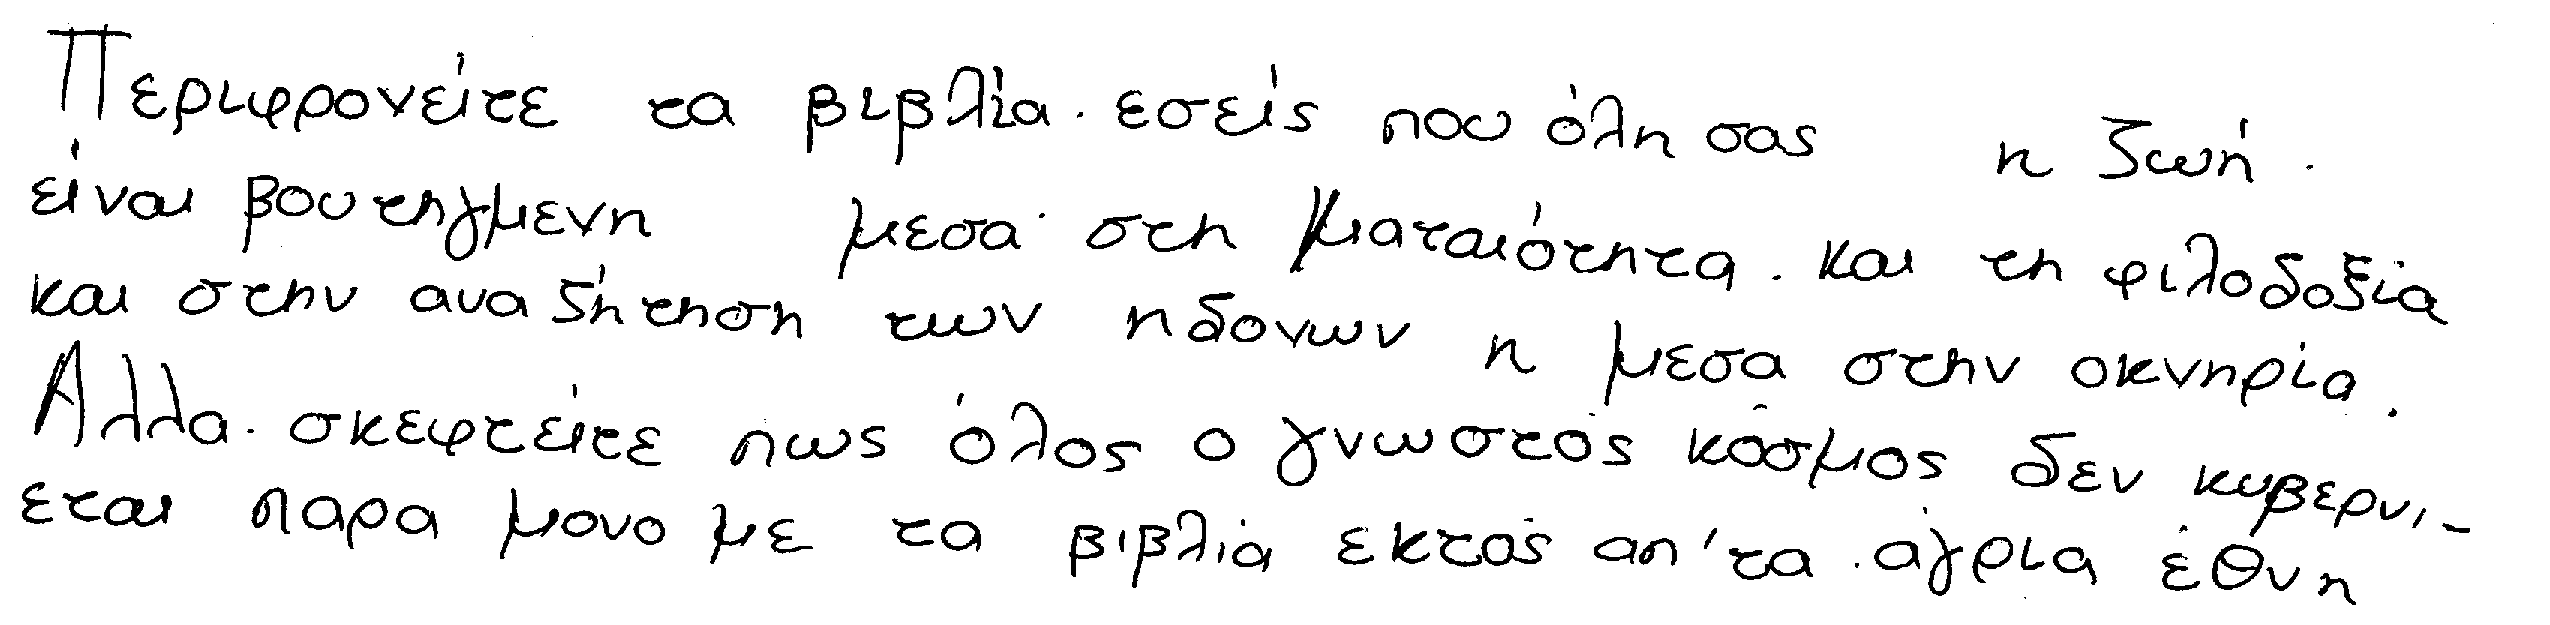 Περιφρονείτε τα βιβλία εσείς που όλη σας η ζωή
είναι βουτηγμενη μεσα στη ματαιότητα. και τη φιλοδοξία
και στην αναζήτηση των ηδονων η μεσα στην οκνηρία.
Αλλα σκεφτείτε πως όλος ο γνωστός κόσμος δεν κυβερνι-
εται παρα μονο με τα βιβλία εκτός απ'τα άγρια έθνη